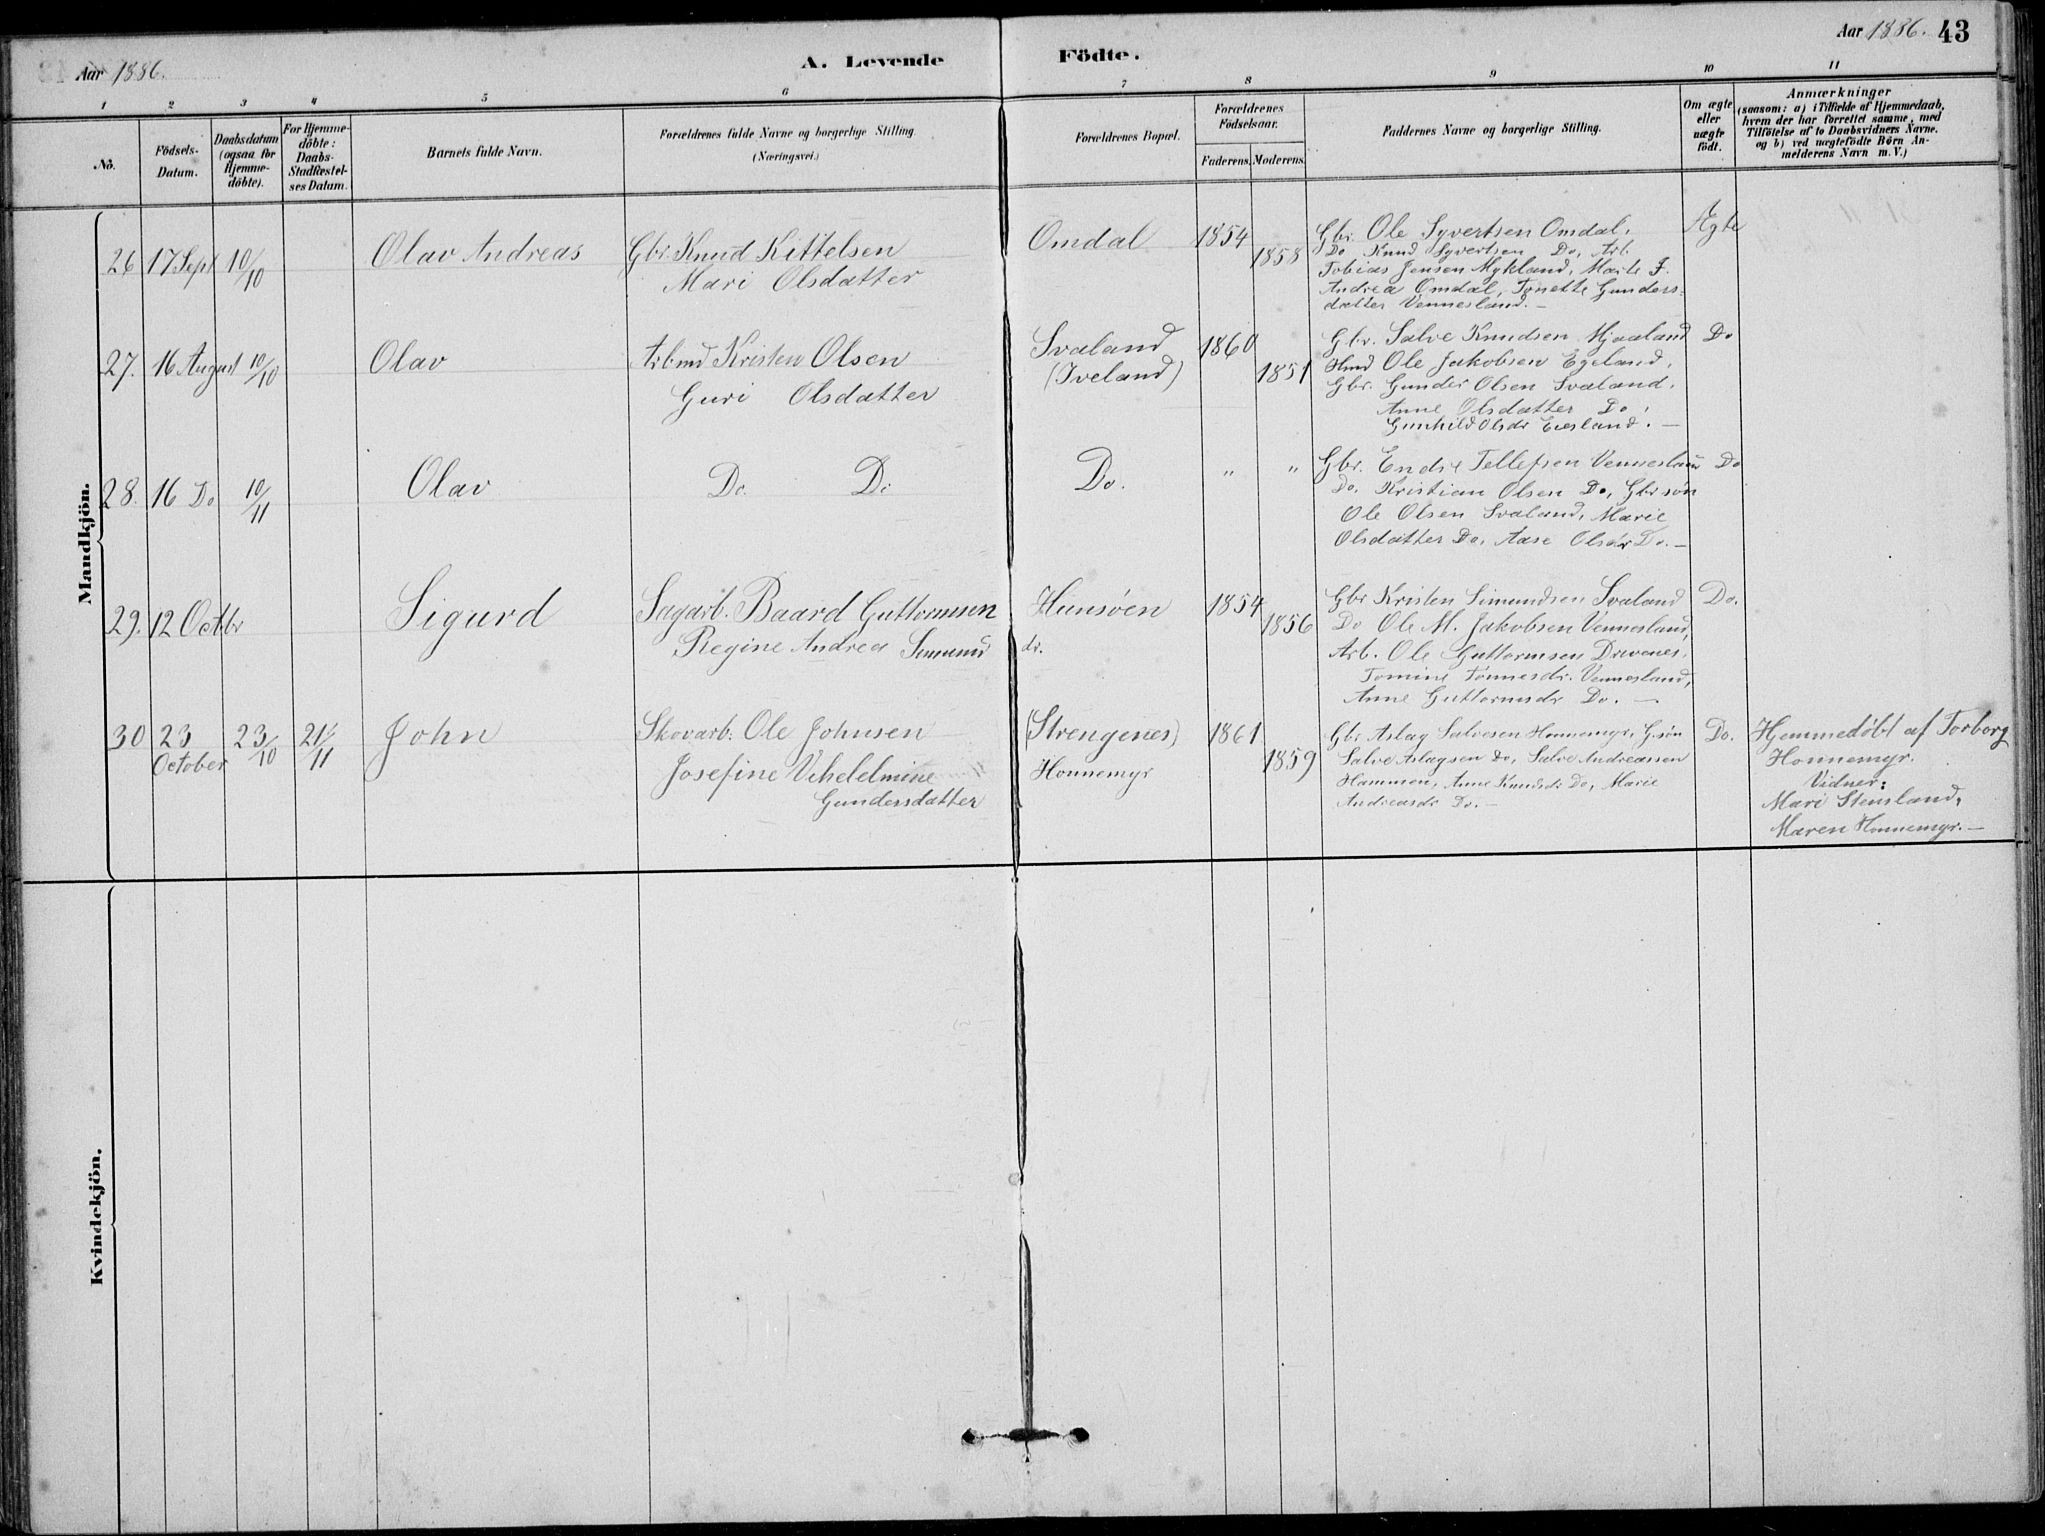 Aar 1886.
A. Levende Födte.
Aar 1886. 43
1 2 3 4 5 6 7 8 9 10 11
No.
Födsels-
Datum.
Daabsdatum
(ogsaa for
Hjemme-
döbte).
For Hjemme-
döbte:
Daabs-
Stadfæstel-
ses Datum.
Barnets fulde Navn.
Forældrenes fulde Navne og borgerlige Stilling.
(Næringsvei.)
Forældrenes Bopæl.
Forældrenes
Födselsaar.
Faderens. Moderens.
Faddernes Navne og borgerlige Stilling.
Om ægte
eller
uægte
födt.
Anmærkninger
(saasom: a) i Tilfælde af Hjemmedaab,
hvem der har forrettet samme, med
Tilföielse af to Daabsvidners Navne.
og b) ved uægtefödte Börn An-
melderens Navn m. V.)
Mandkjön.
26 17 Sept 10/10 Olav Andreas
Gbr. Knud Kittelsen
Mari Olsdatter
Omdal 1854 1858
Gbr. Ole Syvertsen Omdal.
Do Knud Syvertsen Do, Arb.
Tobias Jensen Mykland, Marte J.
Andrea Omdal, Tonette Gunders-
datter Vennesland.—
Ægte
27. 16 August 10/10 Olav
Arbmd Kristen Olsen
Guri Olsdatter
Svaland
(Iveland)
1860 1851
Gbr. Salve Knudsen Mjaaland
Hmd Ole Jakobsen Egeland,
Gbr. Gunder Olsen Svaland.
Anne Olsdatter Do,
Gunhild Olsdr Eiesland.—
Do
28. 16 Do 10/11 Olav
Do. Do
Do. " "
Gbr. Endre Tellefsen Vennesland
Do. Kristian Olsen Do, Gbr søn
Ole Olsen Svaland, Marie
Olsdatter Do, Aase Olsdr Do.—
Do
29. 12 Octbr Sigurd
Sagarb. Baard Guttormsen
Regine Andrea Simunds dr.
Hunsøen
1854 1856
Gbr Kristen Simundsen Svaland
Do Ole M. Jakobsen Vennesland,
Arb. Ole Guttormsen Drivenes,
Tomine Tønnesdr. Vennesland,
Anne Guttormsdr Do.—
Do.
30 23 October 23/10 21/11 John
Skovarb: Ole Johnsen
Josefine Vihelelmine
Gundersdatter
(Strengenes)
Honnemyr
1861 1859
Gbr Aslag Salvesen Honnemyr, G.søn
Salve Aslagsen Do, Salve Andreassen
Hammen, Anne Knudsdr Do, Marie
Andreasdr Do.—
Do.
Hjemmedøbt af Torborg
Honnemyr.
Vidner:
Mari Stensland,
Maren Honnemyr.—
Kvindekjön.